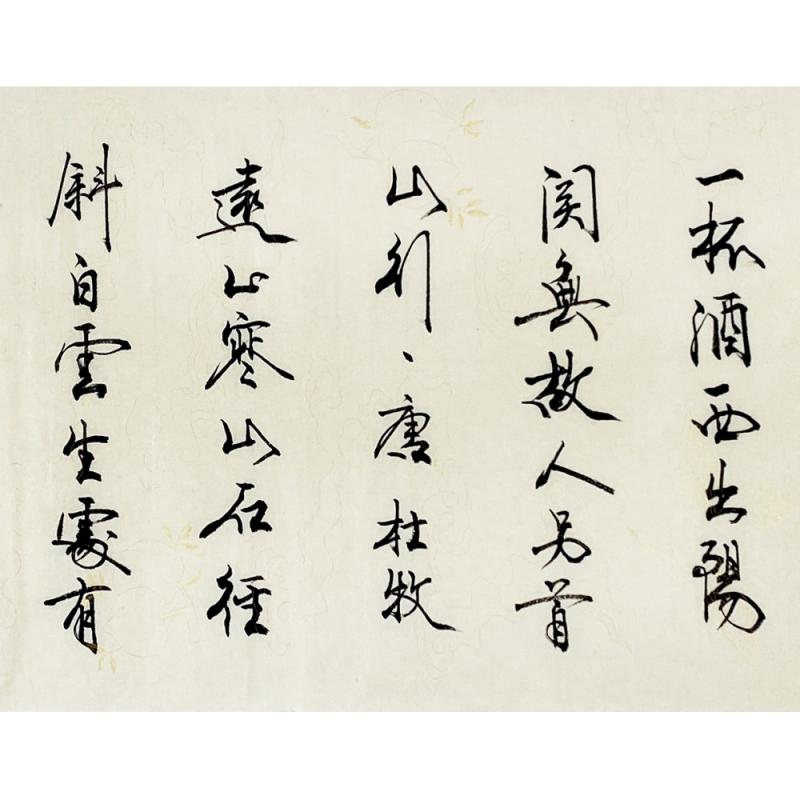 一杯酒西出陽
関無故人另首
山行、唐杜牧
遠上寒山石徑
斜白雲生處有